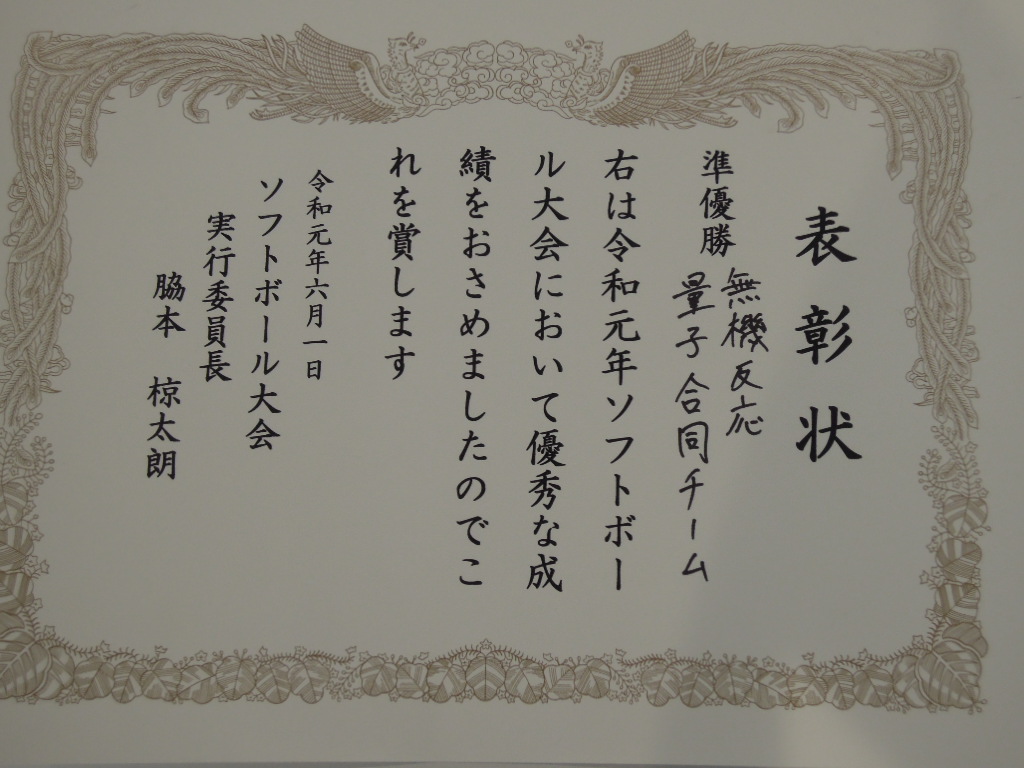 表彰状
準優勝
無機反応
量子合同チーム
右は令和元年ソフトボー
ル大会において優秀な成
績をおさめましたのでこ
れを賞します
令和元年六月一日
ソフトボール大会
実行委員長
脇本 椋太朗